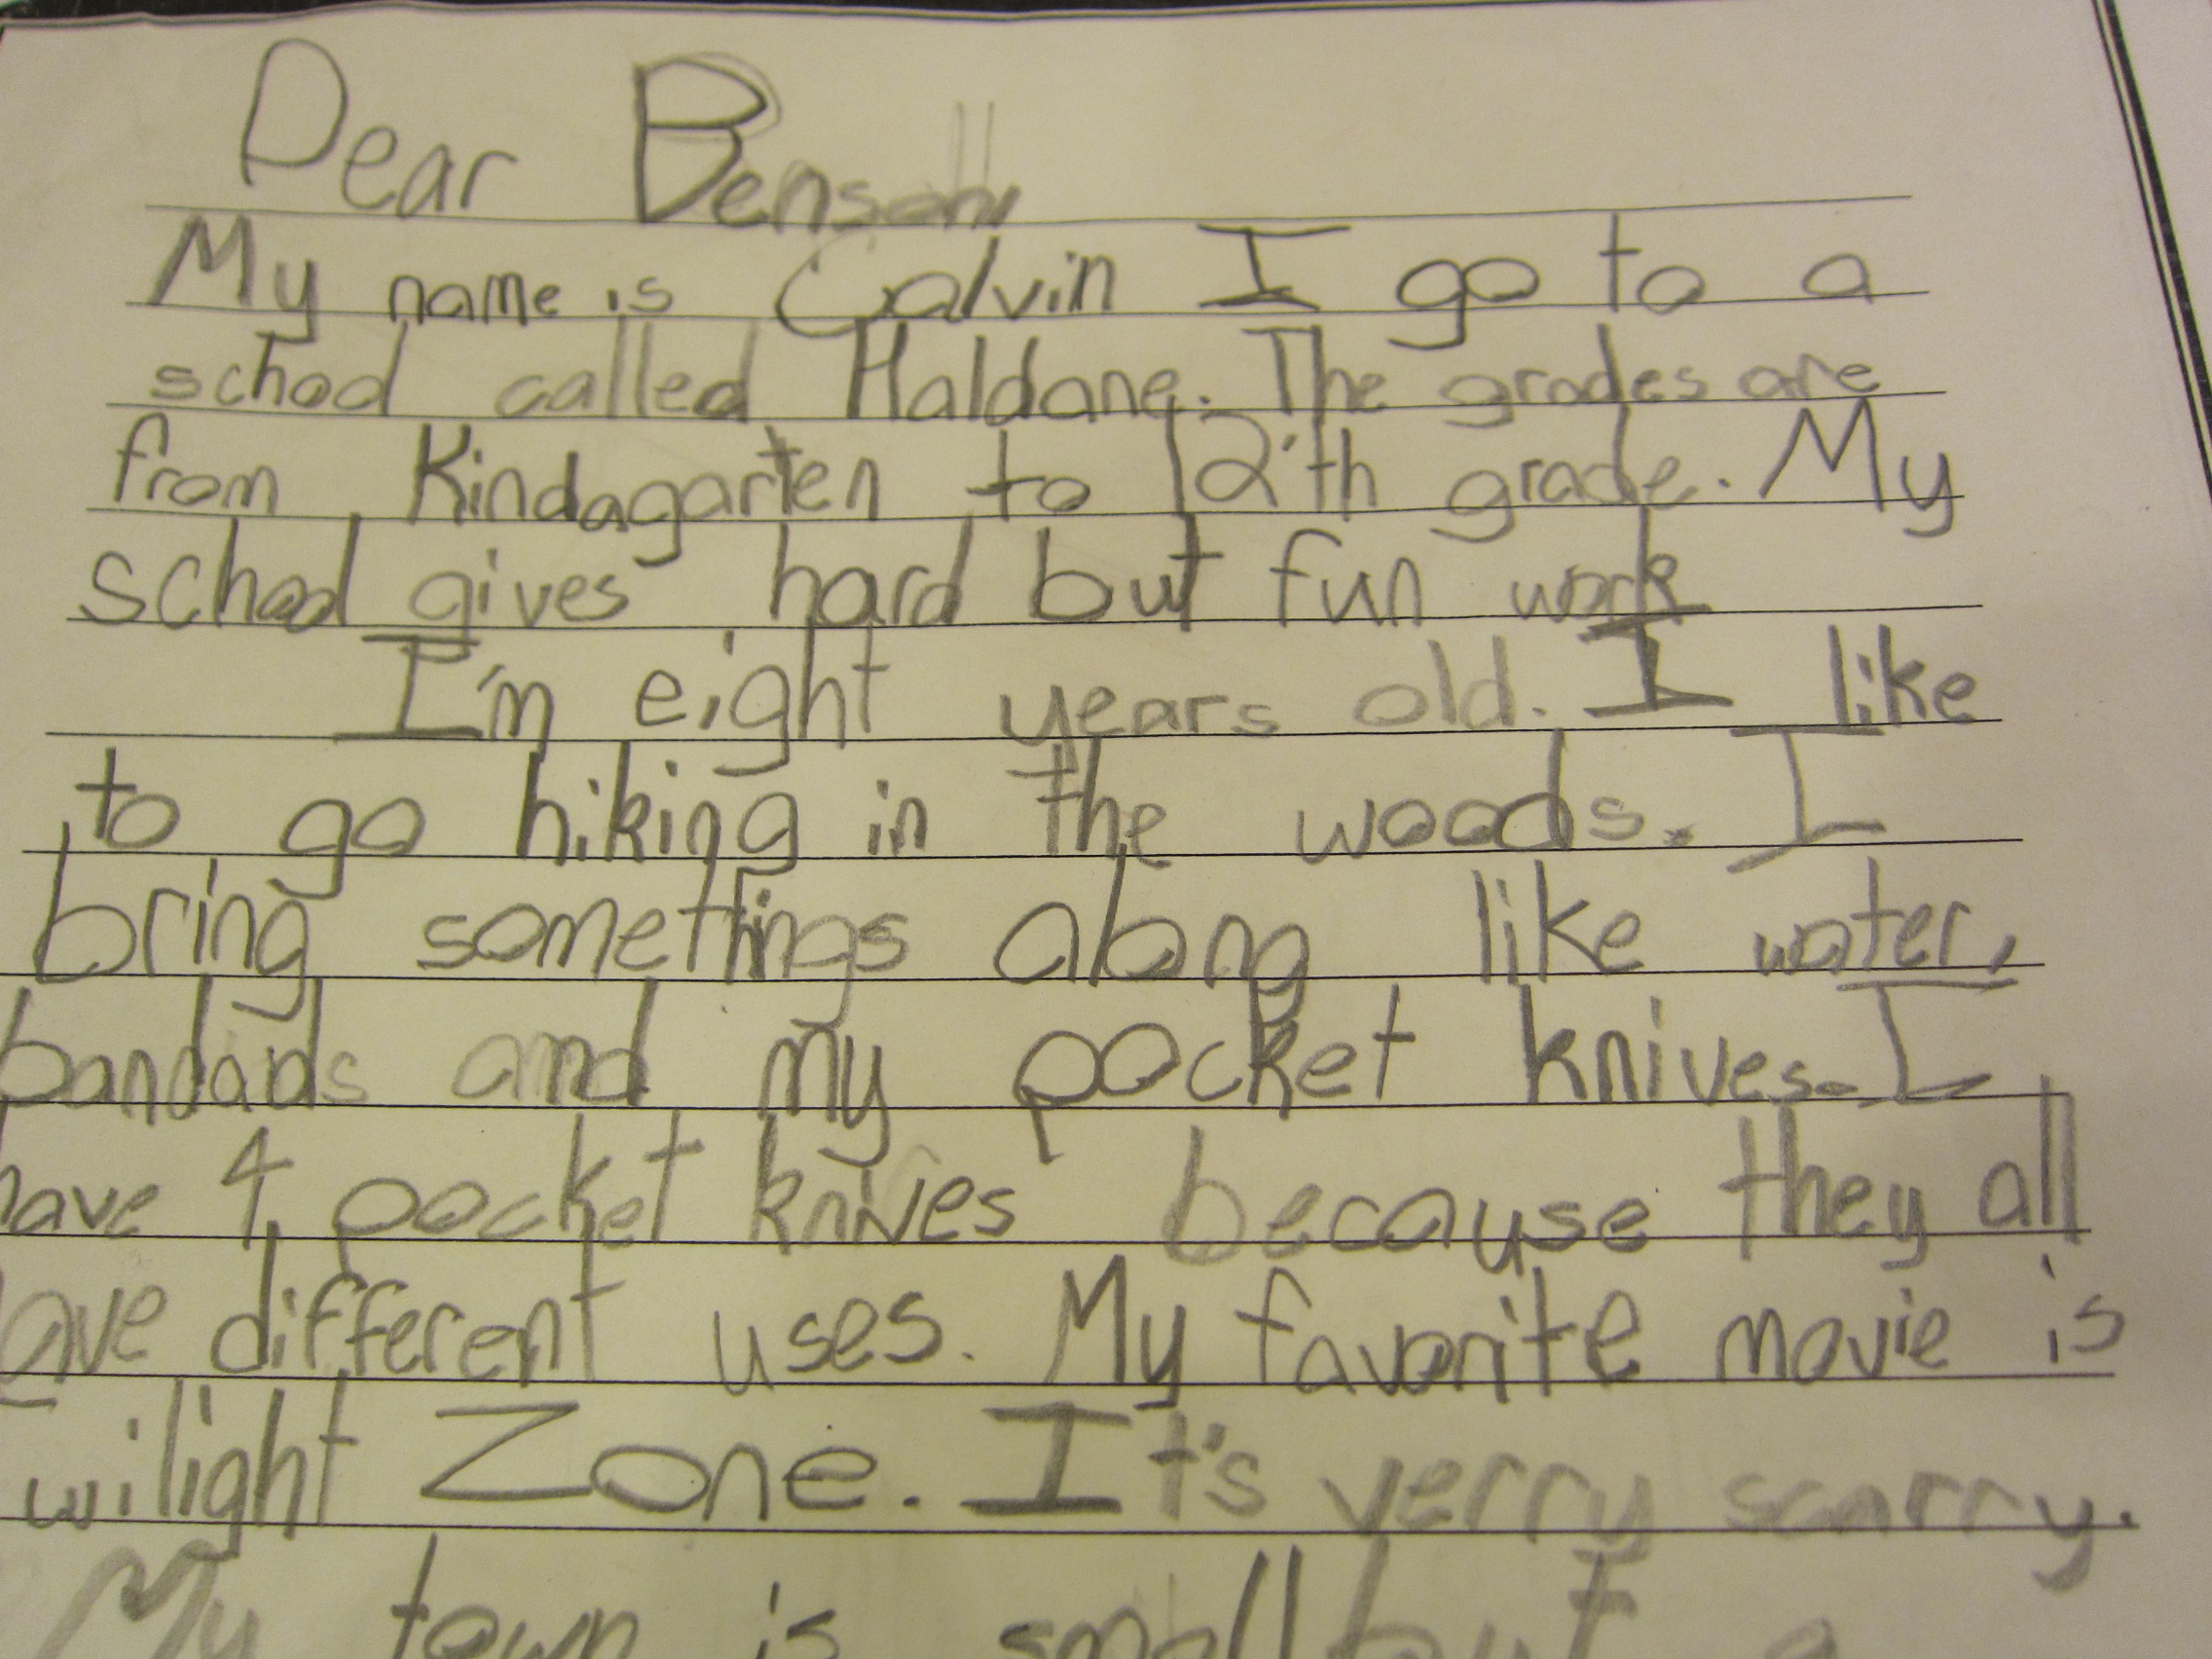 Dear Benson,
My name is Calvin I go to a
school called Haldane. The grades are
from Kindagarten to 12'th grade. My
school gives hard but fun work
I'm eight years old. I like
to go hiking in the woods. I
bring somethings along like water,
bandaids and my pocket knives. I
have 4 pocket knives because they all
have different uses. My favorite movie is
wilight Zone. It's verry scarry.
My town is small but a